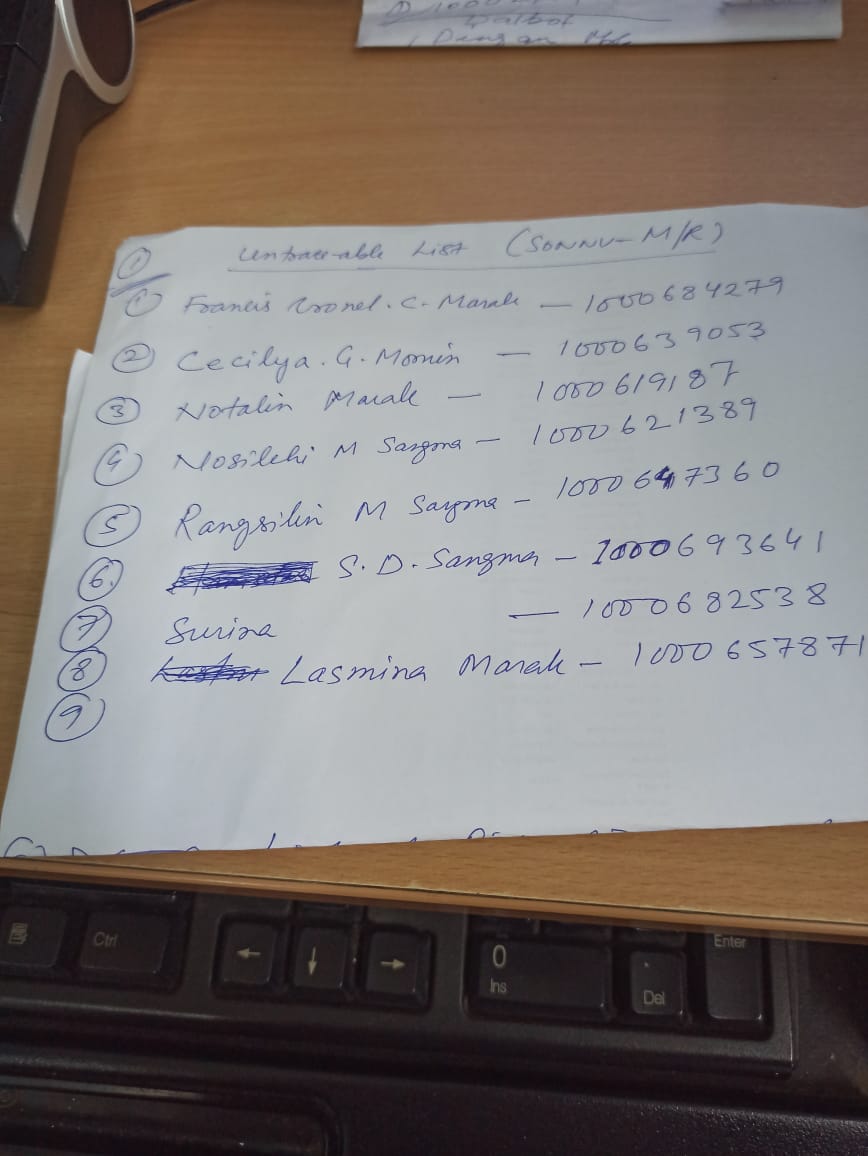 ① 1000
Balbot
① Untraceable List (SONNU- M/R)
① Francis Cronel. C. Marak — 1000684279
② Cecilya. G. Momin — 1000639053
③ Notalin Marak — 1000619187
④ Nosilchi M Sangma — 1000621389
⑤ Rangsilin M Sangma — 1000647360
⑥ S. D. Sangma — 1000693641
⑦ Surina — 1000682538
⑧ Lasmina Marak — 1000657871
⑨
Ctrl
0
Ins
Del
Enter